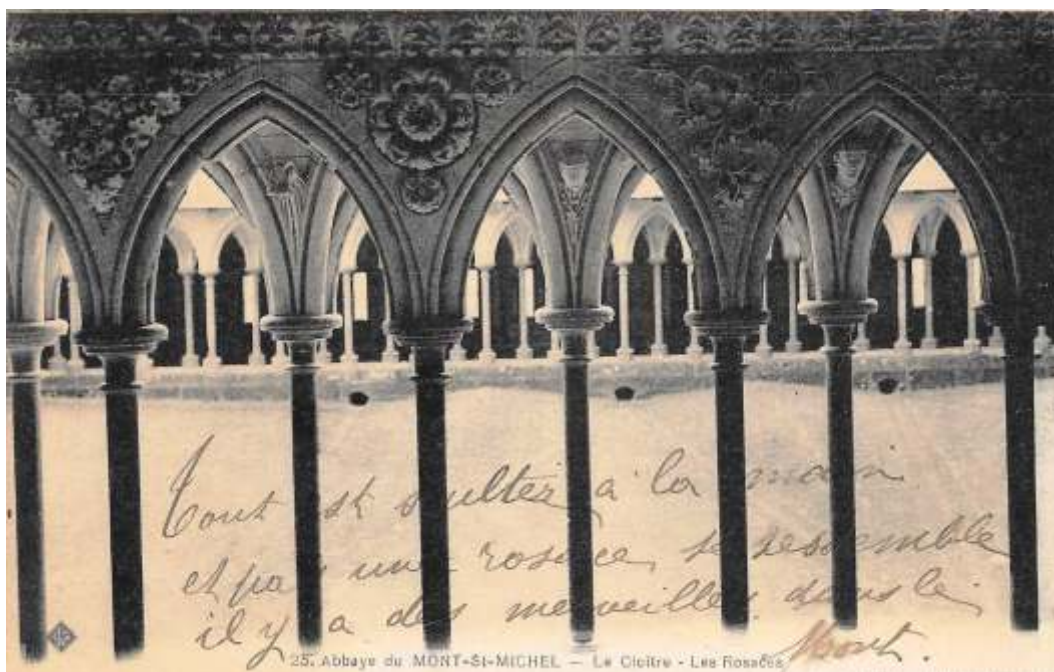 Tout est sculter à la main
et pas une rosace, se ressemble
il y a des merveilles dans le
Mont.
25. Abbaye du MONT-St-MICHEL — Le Cloitre - Les Rosaces